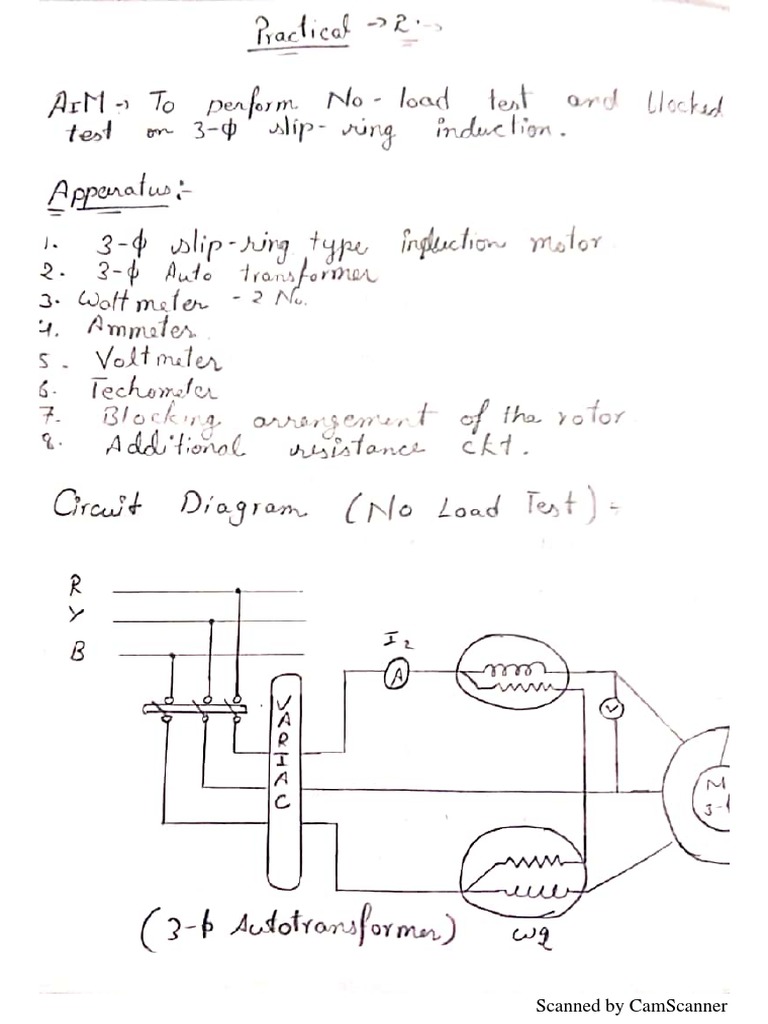 Practical → 2.→
AIM → To perform No-load test and blocked
test on 3-ф slip-ring induction.
Apparatus:-
1. 3-ф slip-ring type induction motor
2. 3-ф Auto transformer
3. Wattmeter - 2 No.
4. Ammeter
5. Voltmeter
6. Techometer
7. Blocking arrangement of the rotor
8. Additional resistance ckt.
Circuit Diagram (No Load Test) :-
R
Y
B
I2
A
V
VARIAC
M
3-
(3-ф Autotransformer)
W2
Scanned by CamScanner